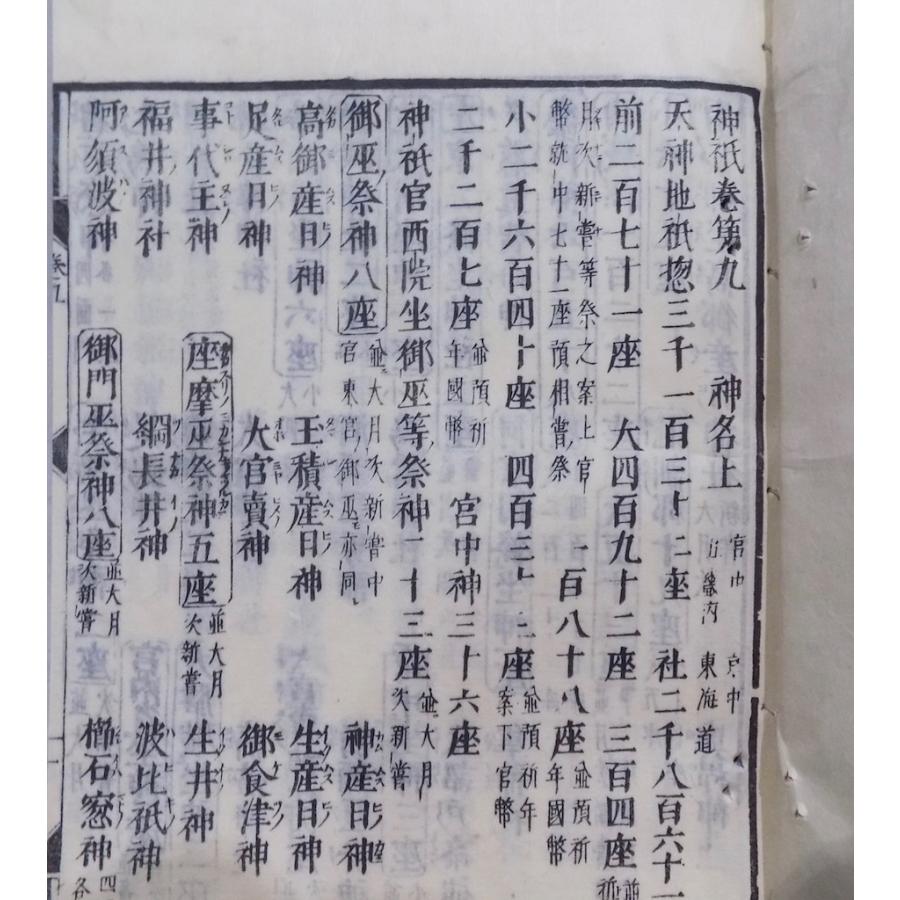 神祇卷第九 神名上 宮中 京中 五畿内 東海道
天神地祇惣三千一百三十二座 社二千八百六十一
前二百七十一座 大四百九十二座 三百四座 並祈
月次新嘗等祭之案上官幣就中七十一座預相嘗祭 一百八十八座 並預祈年國幣
小二千六百四十座 四百三十三座 並預祈年案下官幣
二千二百七座 並預祈年國幣 宮中神三十六座
神祇官西院坐御巫等祭神二十三座 並大月次新嘗
御巫祭神八座 並大月次新嘗中宮東宮御巫亦同 神産日神
高御産日神 玉積産日神 生産日神
足産日神 大宮賣神 御食津神
事代主神 座摩巫祭神五座 並大月次新嘗 生井神
福井神社 綱長井神 波比祇神
阿須波神 御門巫祭神八座 並大月次新嘗 櫛石窓神 四 各